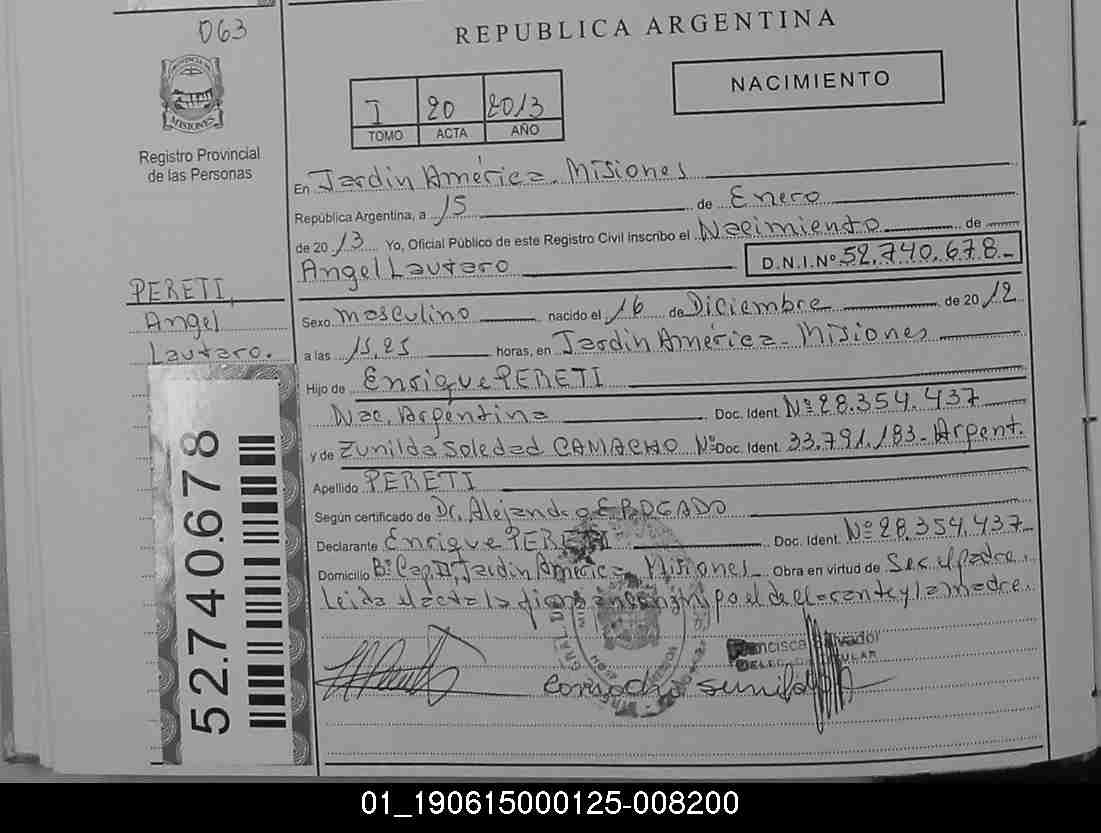 063
REPUBLICA ARGENTINA
PROVINCIA DE
MISIONES
Registro Provincial
de las Personas
I 20 2013
TOMO ACTA AÑO
NACIMIENTO
En Jardin América - Misiones
República Argentina, a 15 de Enero
de 2013 Yo, Oficial Público de este Registro Civil Inscribo el Nacimiento de
Angel Lautaro D.N.I.Nº 52.740.678-
PERETI,
Angel
Lautaro.
Sexo masculino nacido el 16 de Diciembre de 2012
a las 15,25 horas, en Jardin América - Misiones
Hijo de Enrique PERETI
Nac. Argentina Doc. Ident. Nº 28.354.437
y de Zunilda Soledad CAMACHO Nº Doc. Ident. 33.791.183 - Argent.
Apellido PERETI
Según certificado de Dr. Alejandro
Declarante Enrique PERETI Doc. Ident. Nº 28.354.437-
Domicilio Bº Cap II, Jardin América, Misiones Obra en virtud de Ser el padre.
Leida el acta la firman conmigo el declarante y la madre.
Francisca Salvador
DELEGADA TITULAR
camacho sunilda
52.740.678
01_190615000125-008200